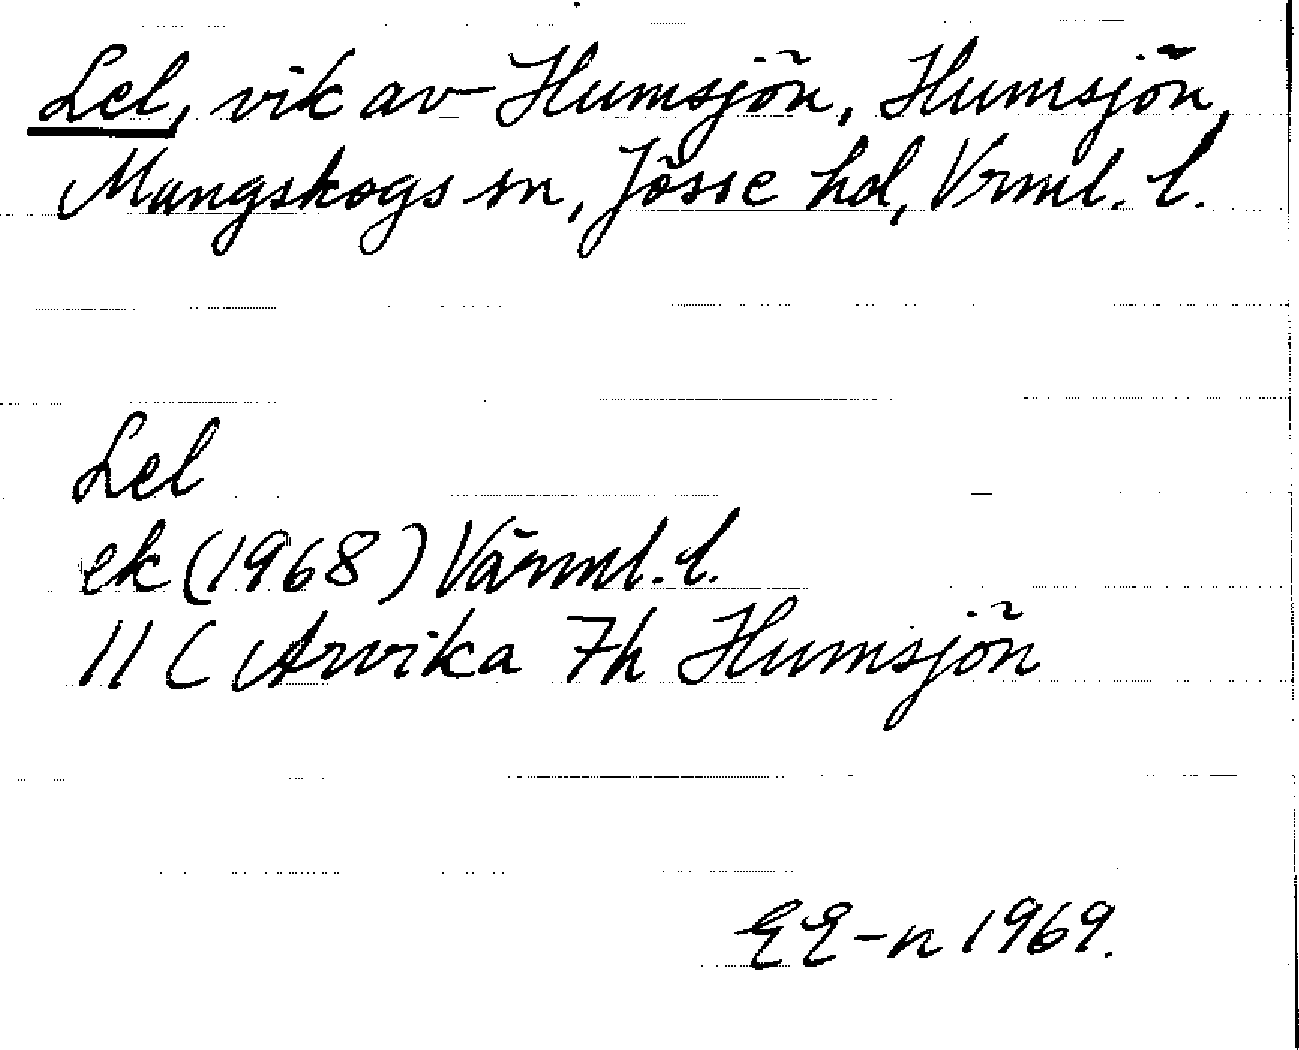 Lel, vik av Humsjön, Humsjön,
Mangskogs sn, Jösse hd, Vrml. l.
Lel
ek (1968) Värml. l.
11 C Arvika 7h Humsjön
EE-n 1969.